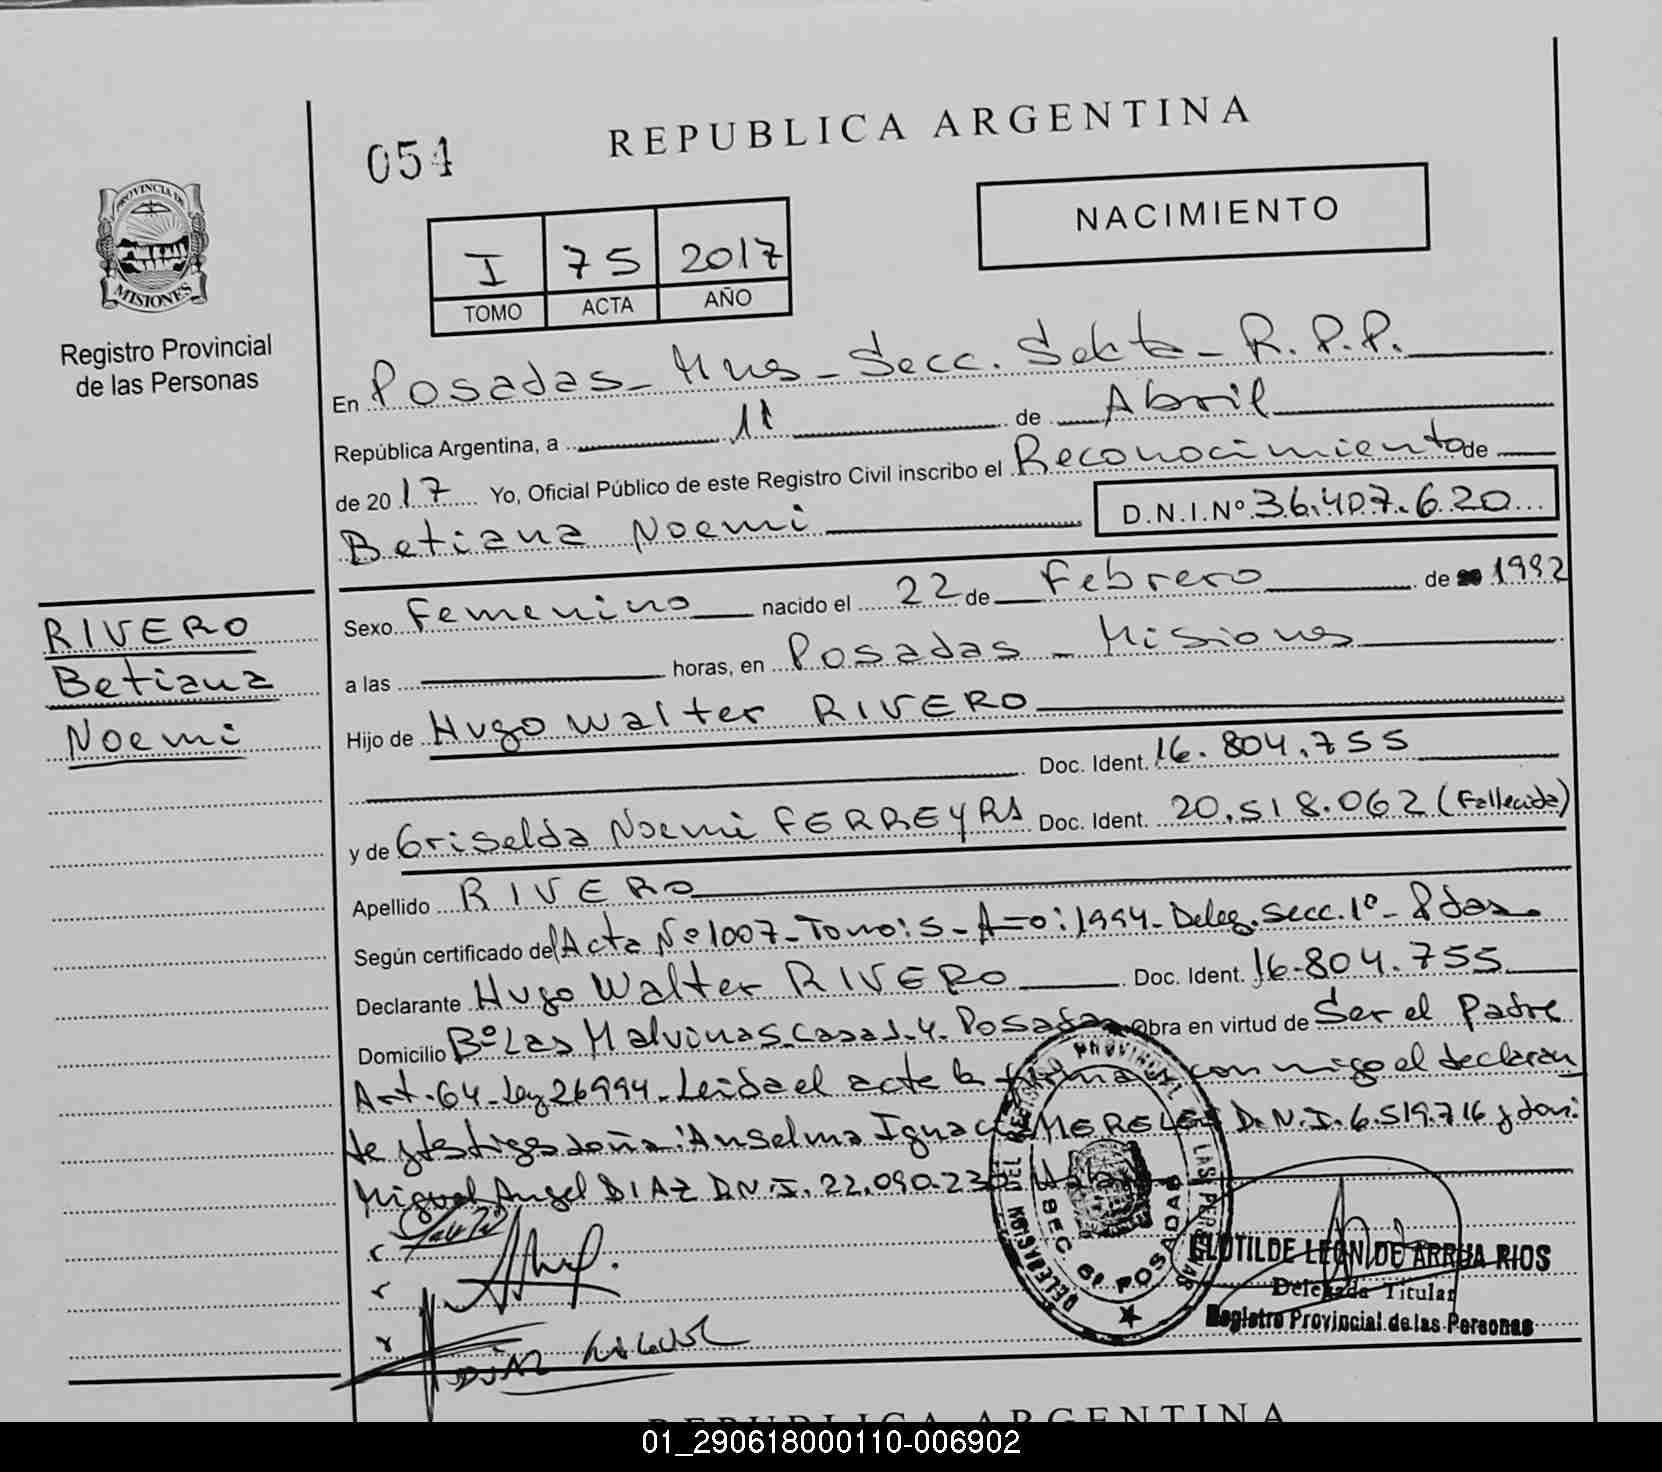 054
REPUBLICA ARGENTINA
NACIMIENTO
PROVINCIA DE
MISIONES
Registro Provincial
de las Personas
I 75 2017
TOMO ACTA AÑO
En Posadas - Mns - Secc. Sexta - R.P.P.
República Argentina, a 11 de Abril
de 2017 Yo, Oficial Público de este Registro Civil inscribo el Reconocimiento de
Betiana Noemi D.N.I.Nº 36.407.620
RIVERO
Betiana
Noemi
Sexo Femenino nacido el 22 de Febrero de 1992
a las horas, en Posadas - Misiones
Hijo de Hugo Walter RIVERO
Doc. Ident. 16.804.755
y de Griselda Noemi FERREYRA Doc. Ident. 20.518.062 (Fallecida)
Apellido RIVERO
Según certificado del Acta Nº 1007 - Tomo: 5 - Año: 1994 - Deleg. Secc. 1º - Pdas.
Declarante Hugo Walter RIVERO Doc. Ident. 16.804.755
Domicilio Bº Las Malvinas Casa 1.4. Posadas Obra en virtud de Ser el Padre
Art. 64 - Ley 26994 - Leida el acta la firman conmigo el declaran
te y testigos doña: Anselma Ignacia MERELES D.N.I. 6.519.716 y don:
Miguel Angel DIAZ D.N.I. 22.090.230
DELEGACION DEL REGISTRO PROVINCIAL DE LAS PERSONAS
SECC. 6ª POSADAS
CLOTILDE LEON DE ARRUA RIOS
Delegada Titular
Registro Provincial de las Personas
DIAZ
REPUBLICA ARGENTINA
01_290618000110-006902